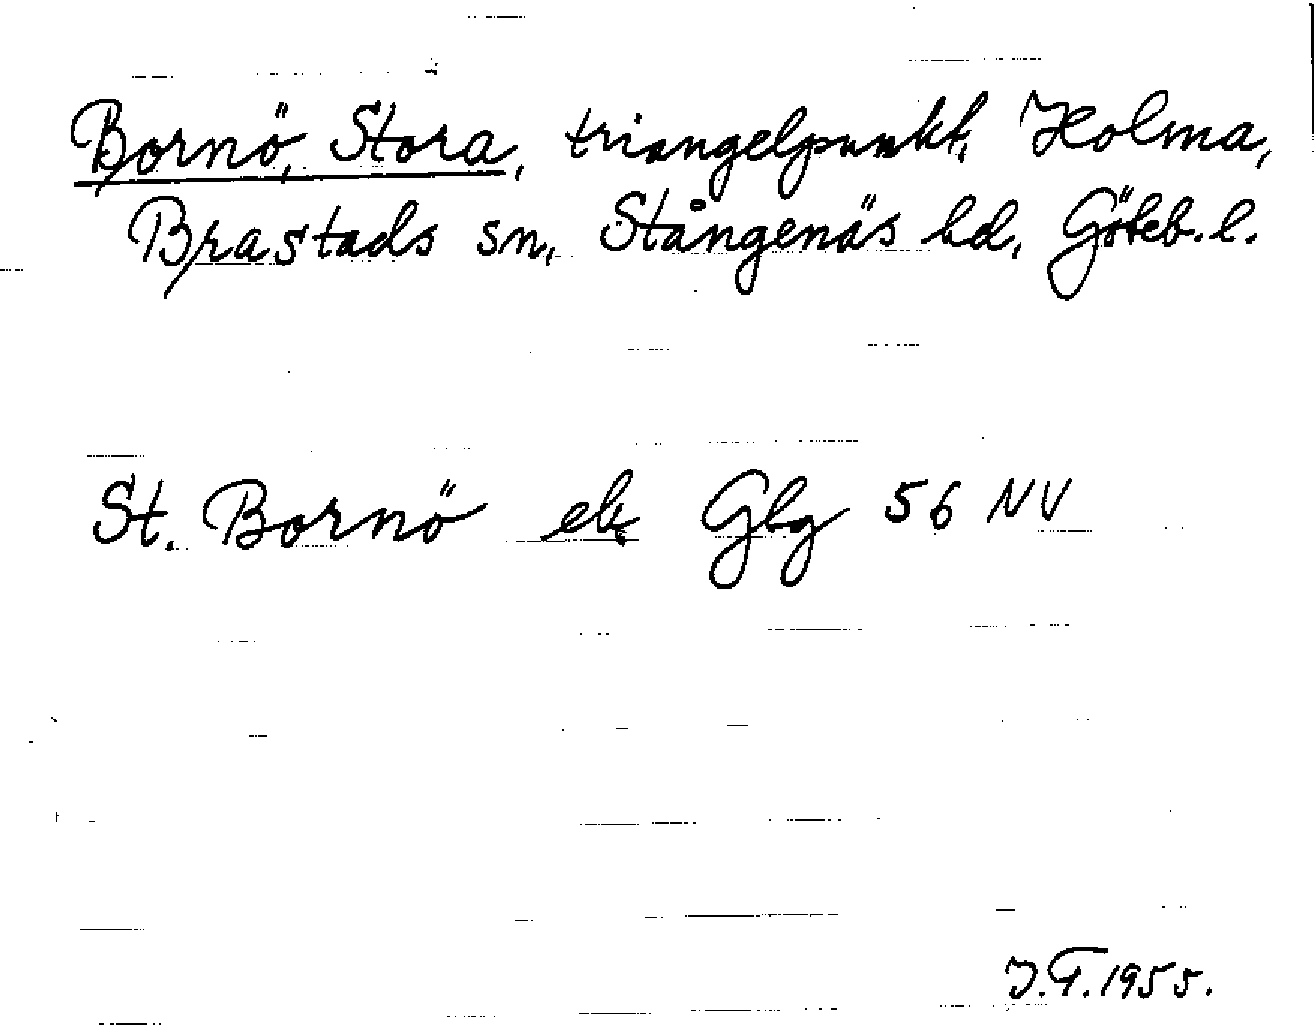 Bornö, Stora, triangelpunkt, Holma,
Brastads sn, Stångenäs hd, Göteb. l.
St. Bornö ek Gbg 56 NV
J.F. 1955.